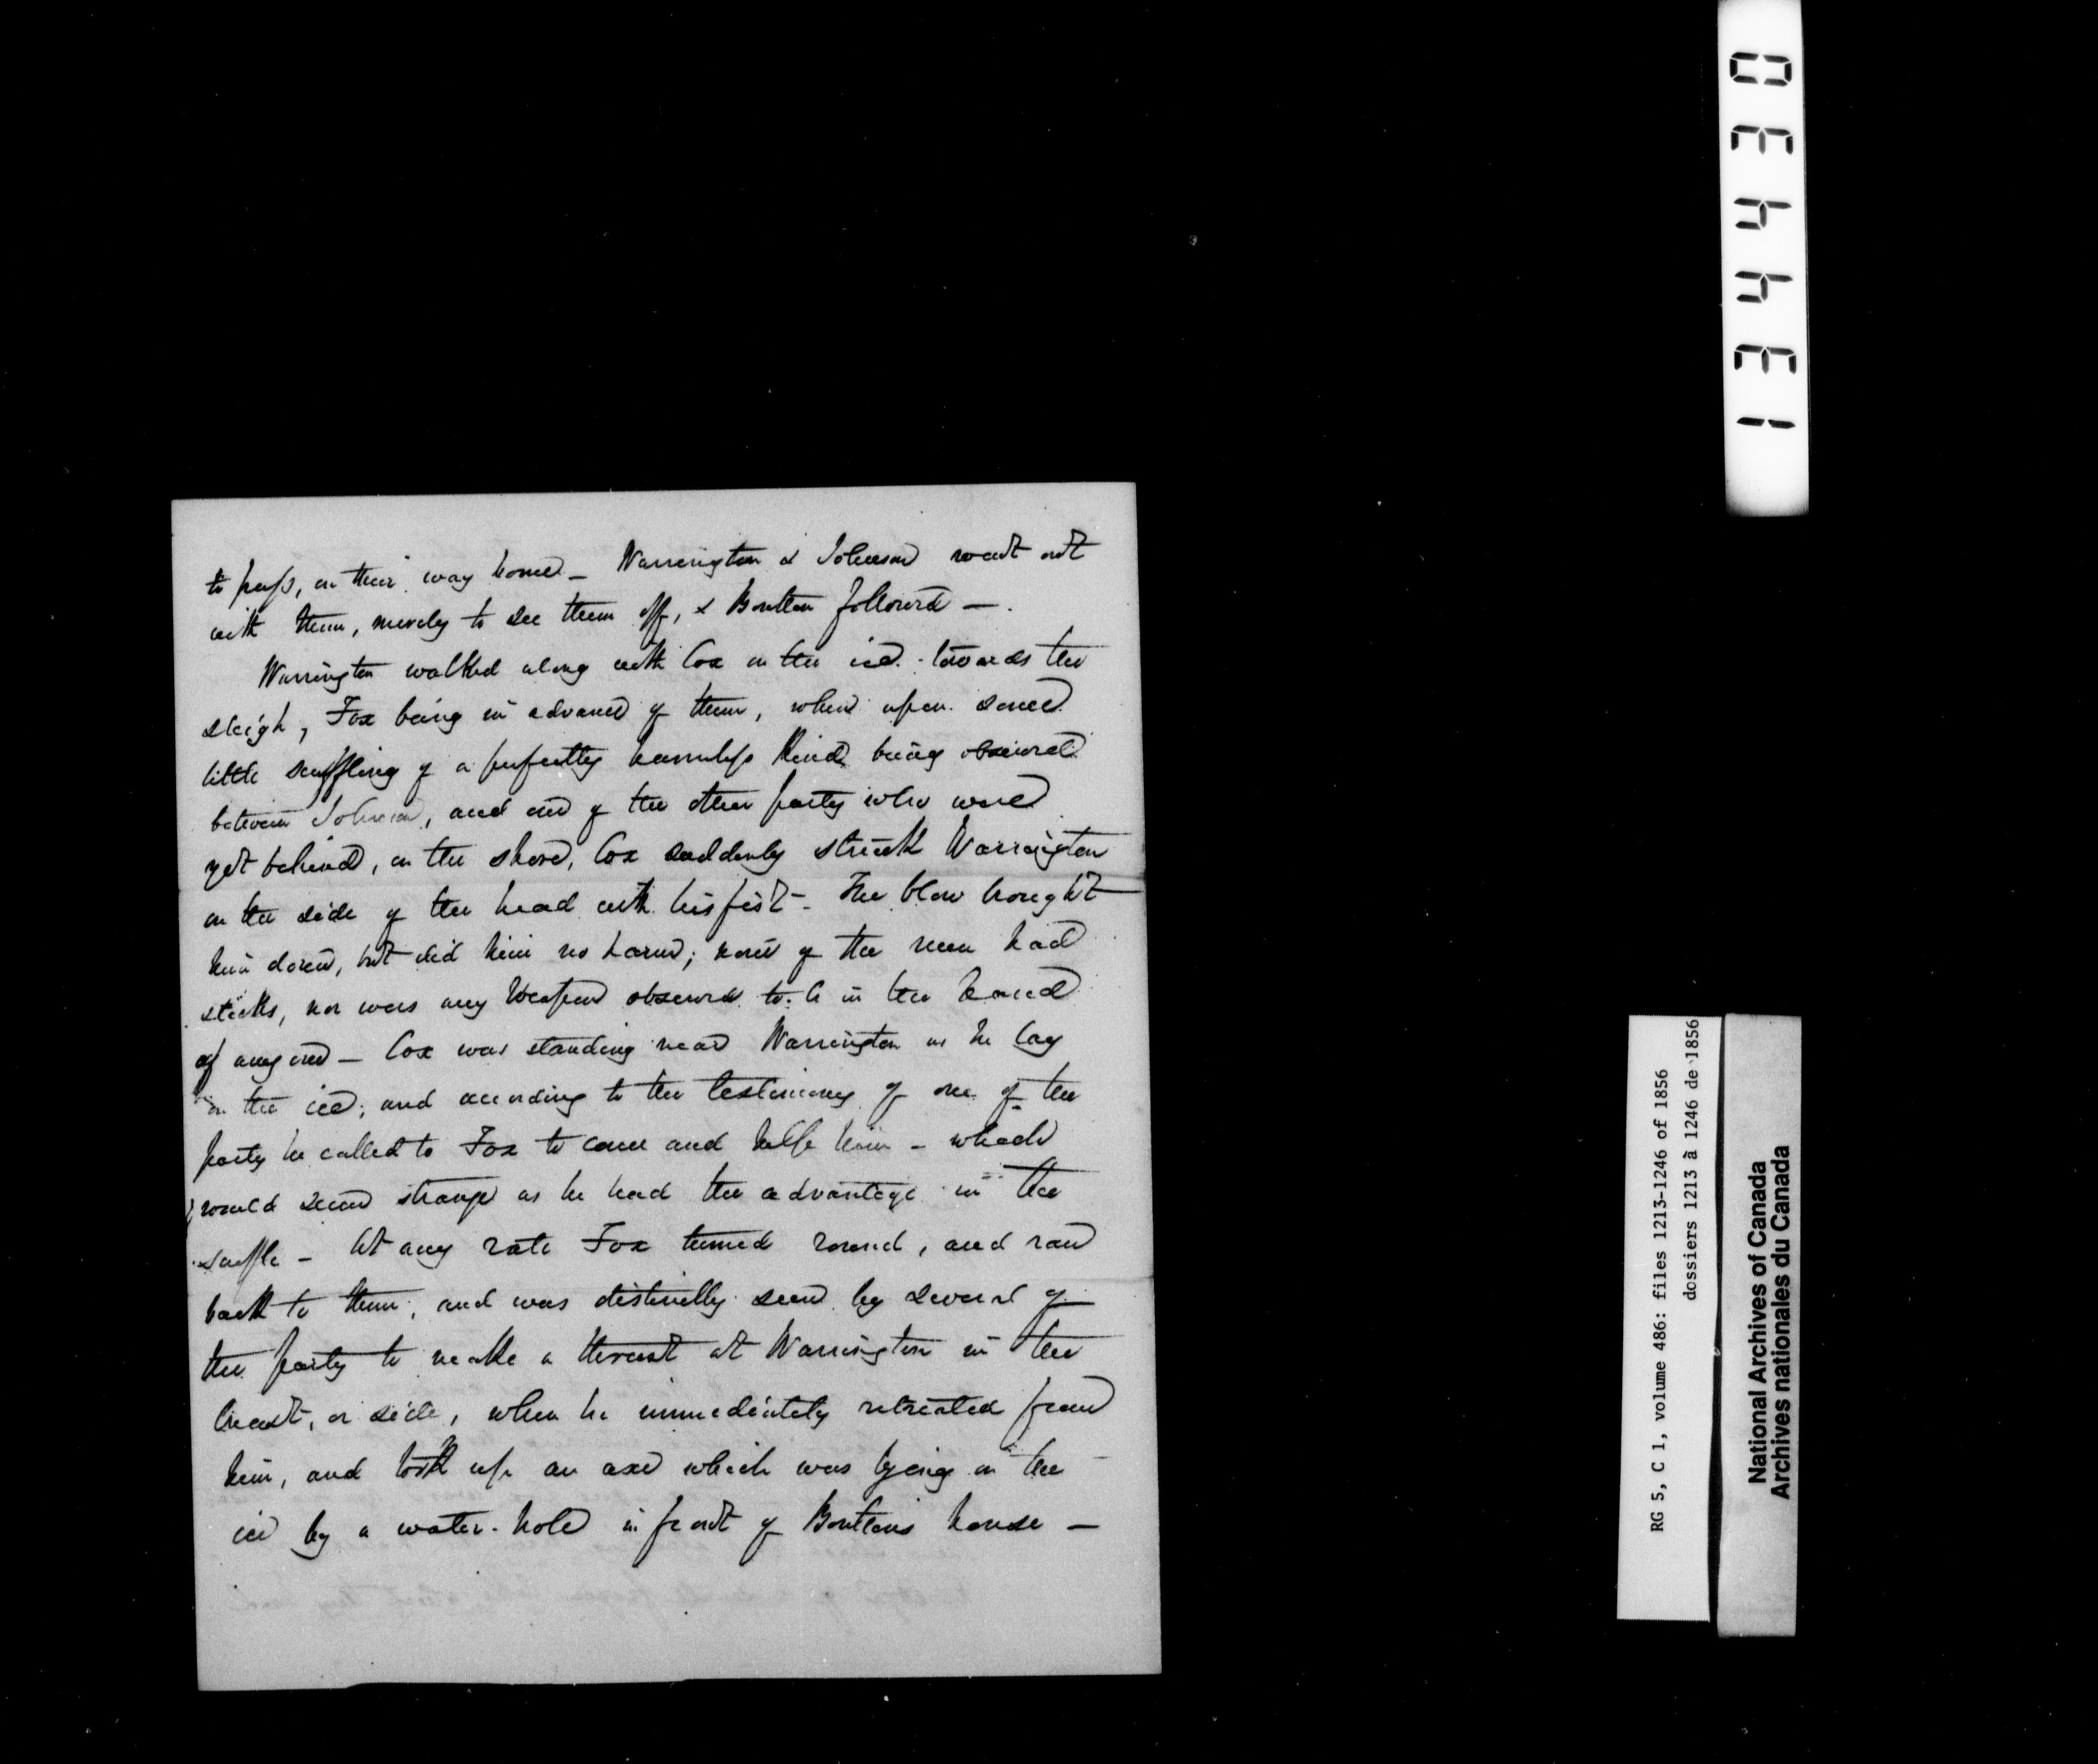 to pass, on their way home – Warrington & Johnson went out
with them, merely to see them off, & Boulton followed – .
Warrington walked along with Cox on the ice towards the
sleigh, Fox being in advance of them, when upon some
little scuffling of a perfectly harmless kind being observed
between Johnson, and one of the other party who were
yet behind, on the shore, Cox suddenly struck Warrington
on the side of the head with his fist – The blow brought
him down, but did him no harm; none of the men had
sticks, nor was any weapon observed to be in the hand
of any one – Cox was standing near Warrington as he lay
on the ice; and according to the testimony of one of the
party he called to Fox to come and help him – which
would seem strange as he had the advantage in the
scuffle – At any rate Fox turned round, and ran
back to them, and was distinctly seen by several of
the party to make a thrust at Warrington in the
breast, or side, when he immediately retreated from
him, and took up an axe which was lying on the
ice by a water-hole in front of Boulton's house –
134430
RG 5, C 1, volume 486: files 1213-1246 of 1856
dossiers 1213 à 1246 de 1856
National Archives of Canada
Archives nationales du Canada